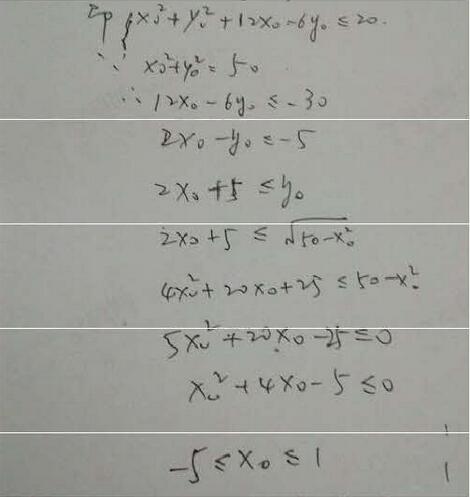 即{x₀²+y₀²+12x₀-6y₀≤20.
∵ x₀²+y₀²=50
∴12x₀-6y₀≤-30
2x₀-y₀≤-5
2x₀+5≤y₀
2x₀+5≤√(50-x₀²)
4x₀²+20x₀+25≤50-x₀²
5x₀²+20x₀-25≤0
x₀²+4x₀-5≤0
-5≤x₀≤1